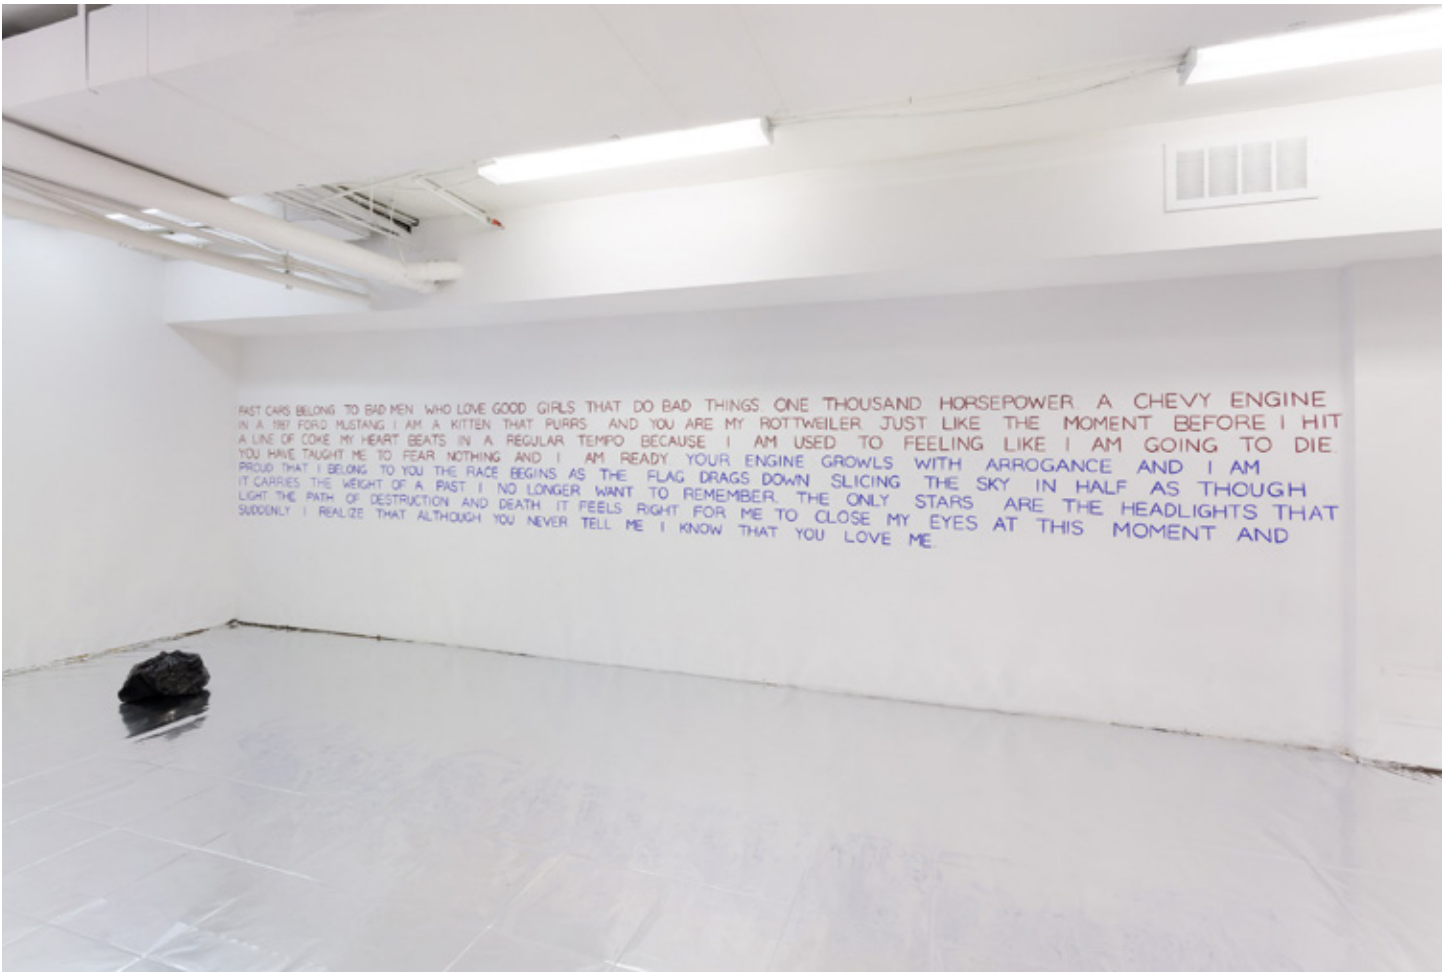 FAST CARS BELONG TO BAD MEN WHO LOVE GOOD GIRLS THAT DO BAD THINGS. ONE THOUSAND HORSEPOWER. A CHEVY ENGINE
IN A 1987 FORD MUSTANG I AM A KITTEN THAT PURRS AND YOU ARE MY ROTTWEILER JUST LIKE THE MOMENT BEFORE I HIT
A LINE OF COKE MY HEART BEATS IN A REGULAR TEMPO BECAUSE I AM USED TO FEELING LIKE I AM GOING TO DIE.
YOU HAVE TAUGHT ME TO FEAR NOTHING AND I AM READY YOUR ENGINE GROWLS WITH ARROGANCE AND I AM
PROUD THAT I BELONG TO YOU THE RACE BEGINS AS THE FLAG DRAGS DOWN SLICING THE SKY IN HALF AS THOUGH
IT CARRIES THE WEIGHT OF A PAST I NO LONGER WANT TO REMEMBER. THE ONLY STARS ARE THE HEADLIGHTS THAT
LIGHT THE PATH OF DESTRUCTION AND DEATH IT FEELS RIGHT FOR ME TO CLOSE MY EYES AT THIS MOMENT AND
SUDDENLY I REALIZE THAT ALTHOUGH YOU NEVER TELL ME I KNOW THAT YOU LOVE ME.